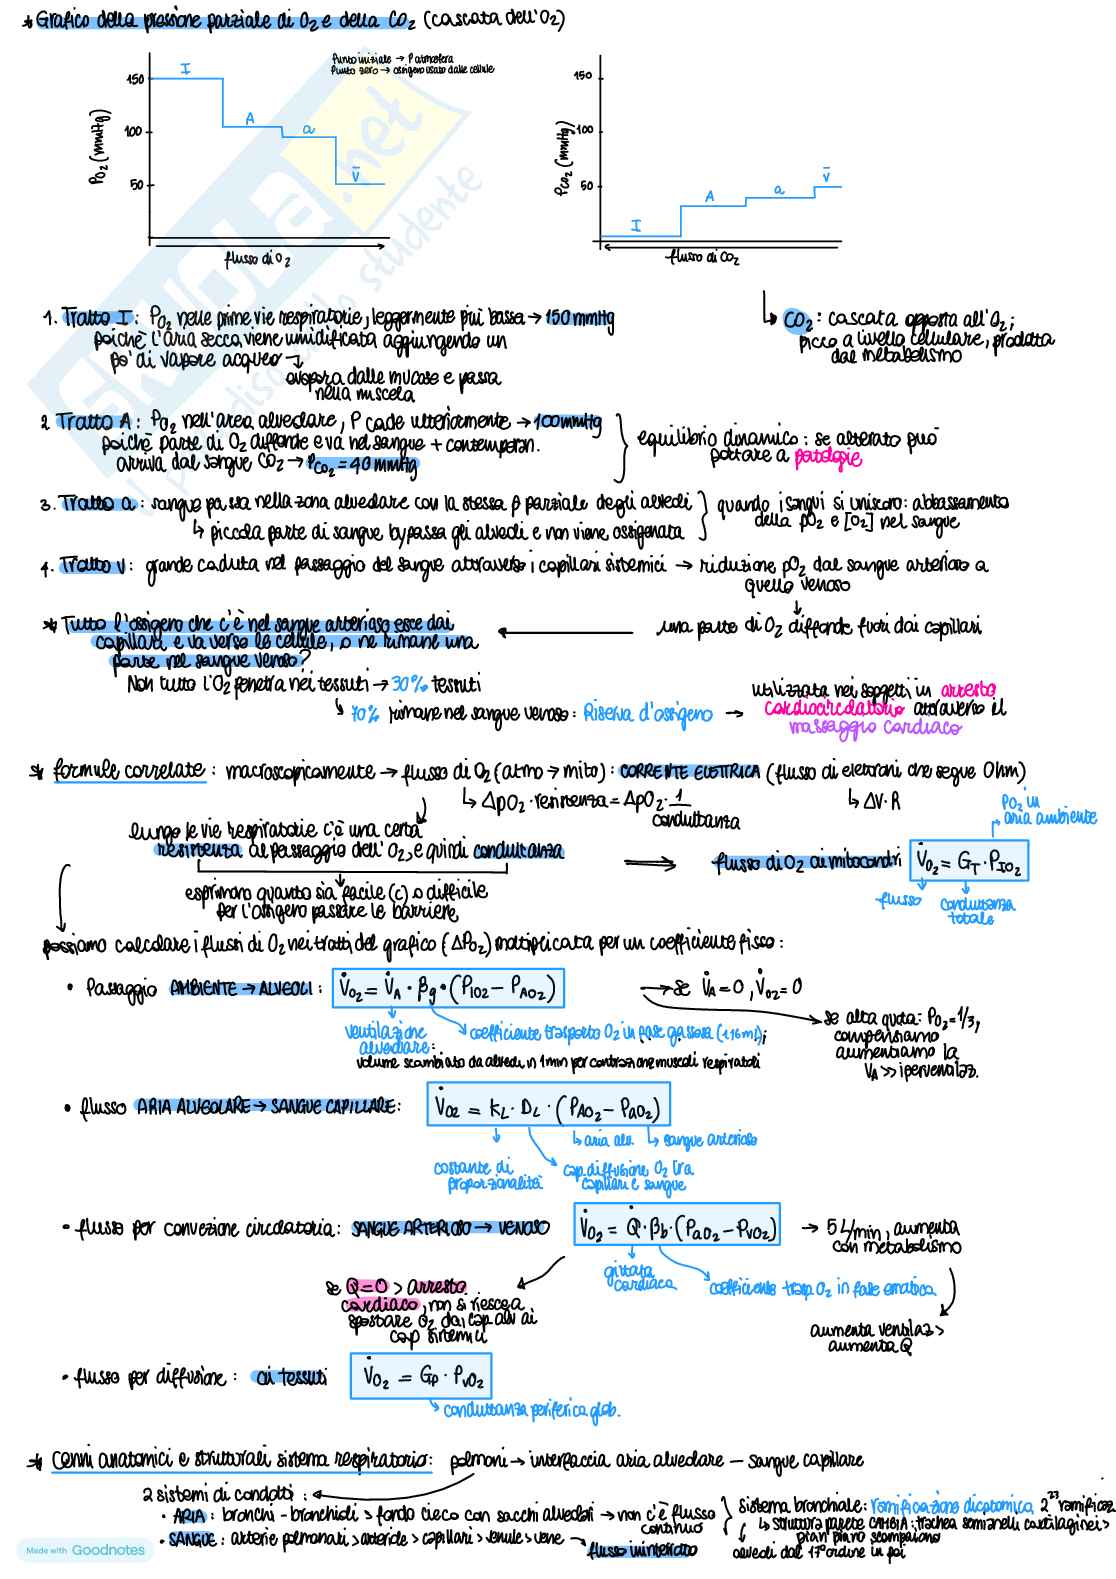 * Grafico della pressione parziale di O2 e della CO2 (cascata dell'O2)
Punto iniziale → P atmosfera
Punto zero → ossigeno usato dalle cellule
PO2 (mmHg)
150
100
50
I
A
a
v̄
flusso di O2
PCO2 (mmHg)
150
100
50
I
A
a
v̄
flusso di CO2
skuola.net
studente
1. Tratto I: PO2 nelle prime vie respiratorie, leggermente più bassa → 150 mmHg
poiché l'aria secca viene umidificata aggiungendo un
po' di vapore acqueo
evapora dalle mucose e passa
nella miscela
CO2: cascata opposta all'O2;
picco a livello cellulare, prodotta
dal metabolismo
2 Tratto A: PO2 nell'area alveolare, P cade ulteriormente → 100 mmHg
poiché parte di O2 diffonde e va nel sangue + contemporan.
arriva dal sangue CO2 → PCO2 = 40 mmHg
equilibrio dinamico: se alterato può
portare a patologie
3. Tratto a: sangue passa nella zona alveolare con la stessa p parziale degli alveoli
↳ piccola parte di sangue bypassa gli alveoli e non viene ossigenata
quando i sangui si uniscono: abbassamento
della pO2 e [O2] nel sangue
4. Tratto v: grande caduta nel passaggio del sangue attraverso i capillari sistemici → riduzione pO2 dal sangue arterioso a
quello venoso
una parte di O2 diffonde fuori dai capillari
* Tutto l'ossigeno che c'è nel sangue arterioso esce dai
capillari e va verso le cellule, o ne rimane una
parte nel sangue venoso?
Non tutto l'O2 penetra nei tessuti → 30% tessuti
↳ 70% rimane nel sangue venoso: Riserva d'ossigeno →
utilizzata nei soggetti in arresto
cardiocircolatorio attraverso il
massaggio cardiaco
* formule correlate: macroscopicamente → flusso di O2 (atmo → mito): CORRENTE ELETTRICA (flusso di elettroni che segue Ohm)
↳ ΔpO2 · resistenza = ΔpO2 · 1/conduttanza
↳ ΔV · R
lungo le vie respiratorie c'è una certa
resistenza al passaggio dell'O2, e quindi conduttanza
esprimono quanto sia facile (c) o difficile
per l'ossigeno passare le barriere
flusso di O2 ai mitocondri V̇O2 = GT · PIO2
PO2 in
aria ambiente
flusso
conduttanza
totale
possiamo calcolare i flussi di O2 nei tratti del grafico (ΔPO2) moltiplicata per un coefficiente fisco:
• Passaggio AMBIENTE → ALVEOLI: V̇O2 = V̇A · βg · (PIO2 − PAO2)
→ se V̇A = 0, V̇O2 = 0
ventilazione
alveolare:
coefficiente trasporto O2 in fase gassosa (1.16 ml);
volume scambiato da alveoli in 1 min per contrazione muscoli respiratori
se alta quota: PO2 = 1/3,
compensiamo
aumentiamo la
VA >> iperventilaz.
• flusso ARIA ALVEOLARE → SANGUE CAPILLARE: V̇O2 = KL · DL · (PAO2 − PaO2)
↳ aria alv.
↳ sangue arterioso
costante di
proporzionalità
cap. diffusione O2 tra
capillari e sangue
• flusso per convezione circolatoria: SANGUE ARTERIOSO → VENOSO V̇O2 = Q̇ · βb · (PaO2 − PvO2)
→ 5 L/min, aumenta
con metabolismo
gittata
cardiaca
coefficiente trasp O2 in fase ematica
se Q=0 > arresto
cardiaco, non si riesce a
spostare O2 dai cap alv ai
cap sistemici
aumenta ventilaz >
aumenta Q
• flusso per diffusione: ai tessuti V̇O2 = Gp · PvO2
conduttanza periferica glob.
* Cenni anatomici e strutturali sistema respiratorio: polmoni → interfaccia aria alveolare — sangue capillare
2 sistemi di condotti:
• ARIA: bronchi - bronchioli > fondo cieco con sacchi alveolari → non c'è flusso
continuo
• SANGUE: arterie polmonari > arteriole > capillari > venule > vene
flusso ininterrotto
sistema bronchiale: ramificazione dicotomica, 2^23 ramificaz
↳ struttura parete CAMBIA: trachea semianelli cartilaginei >
pian piano scompaiono
alveoli dal 17° ordine in poi
Made with Goodnotes